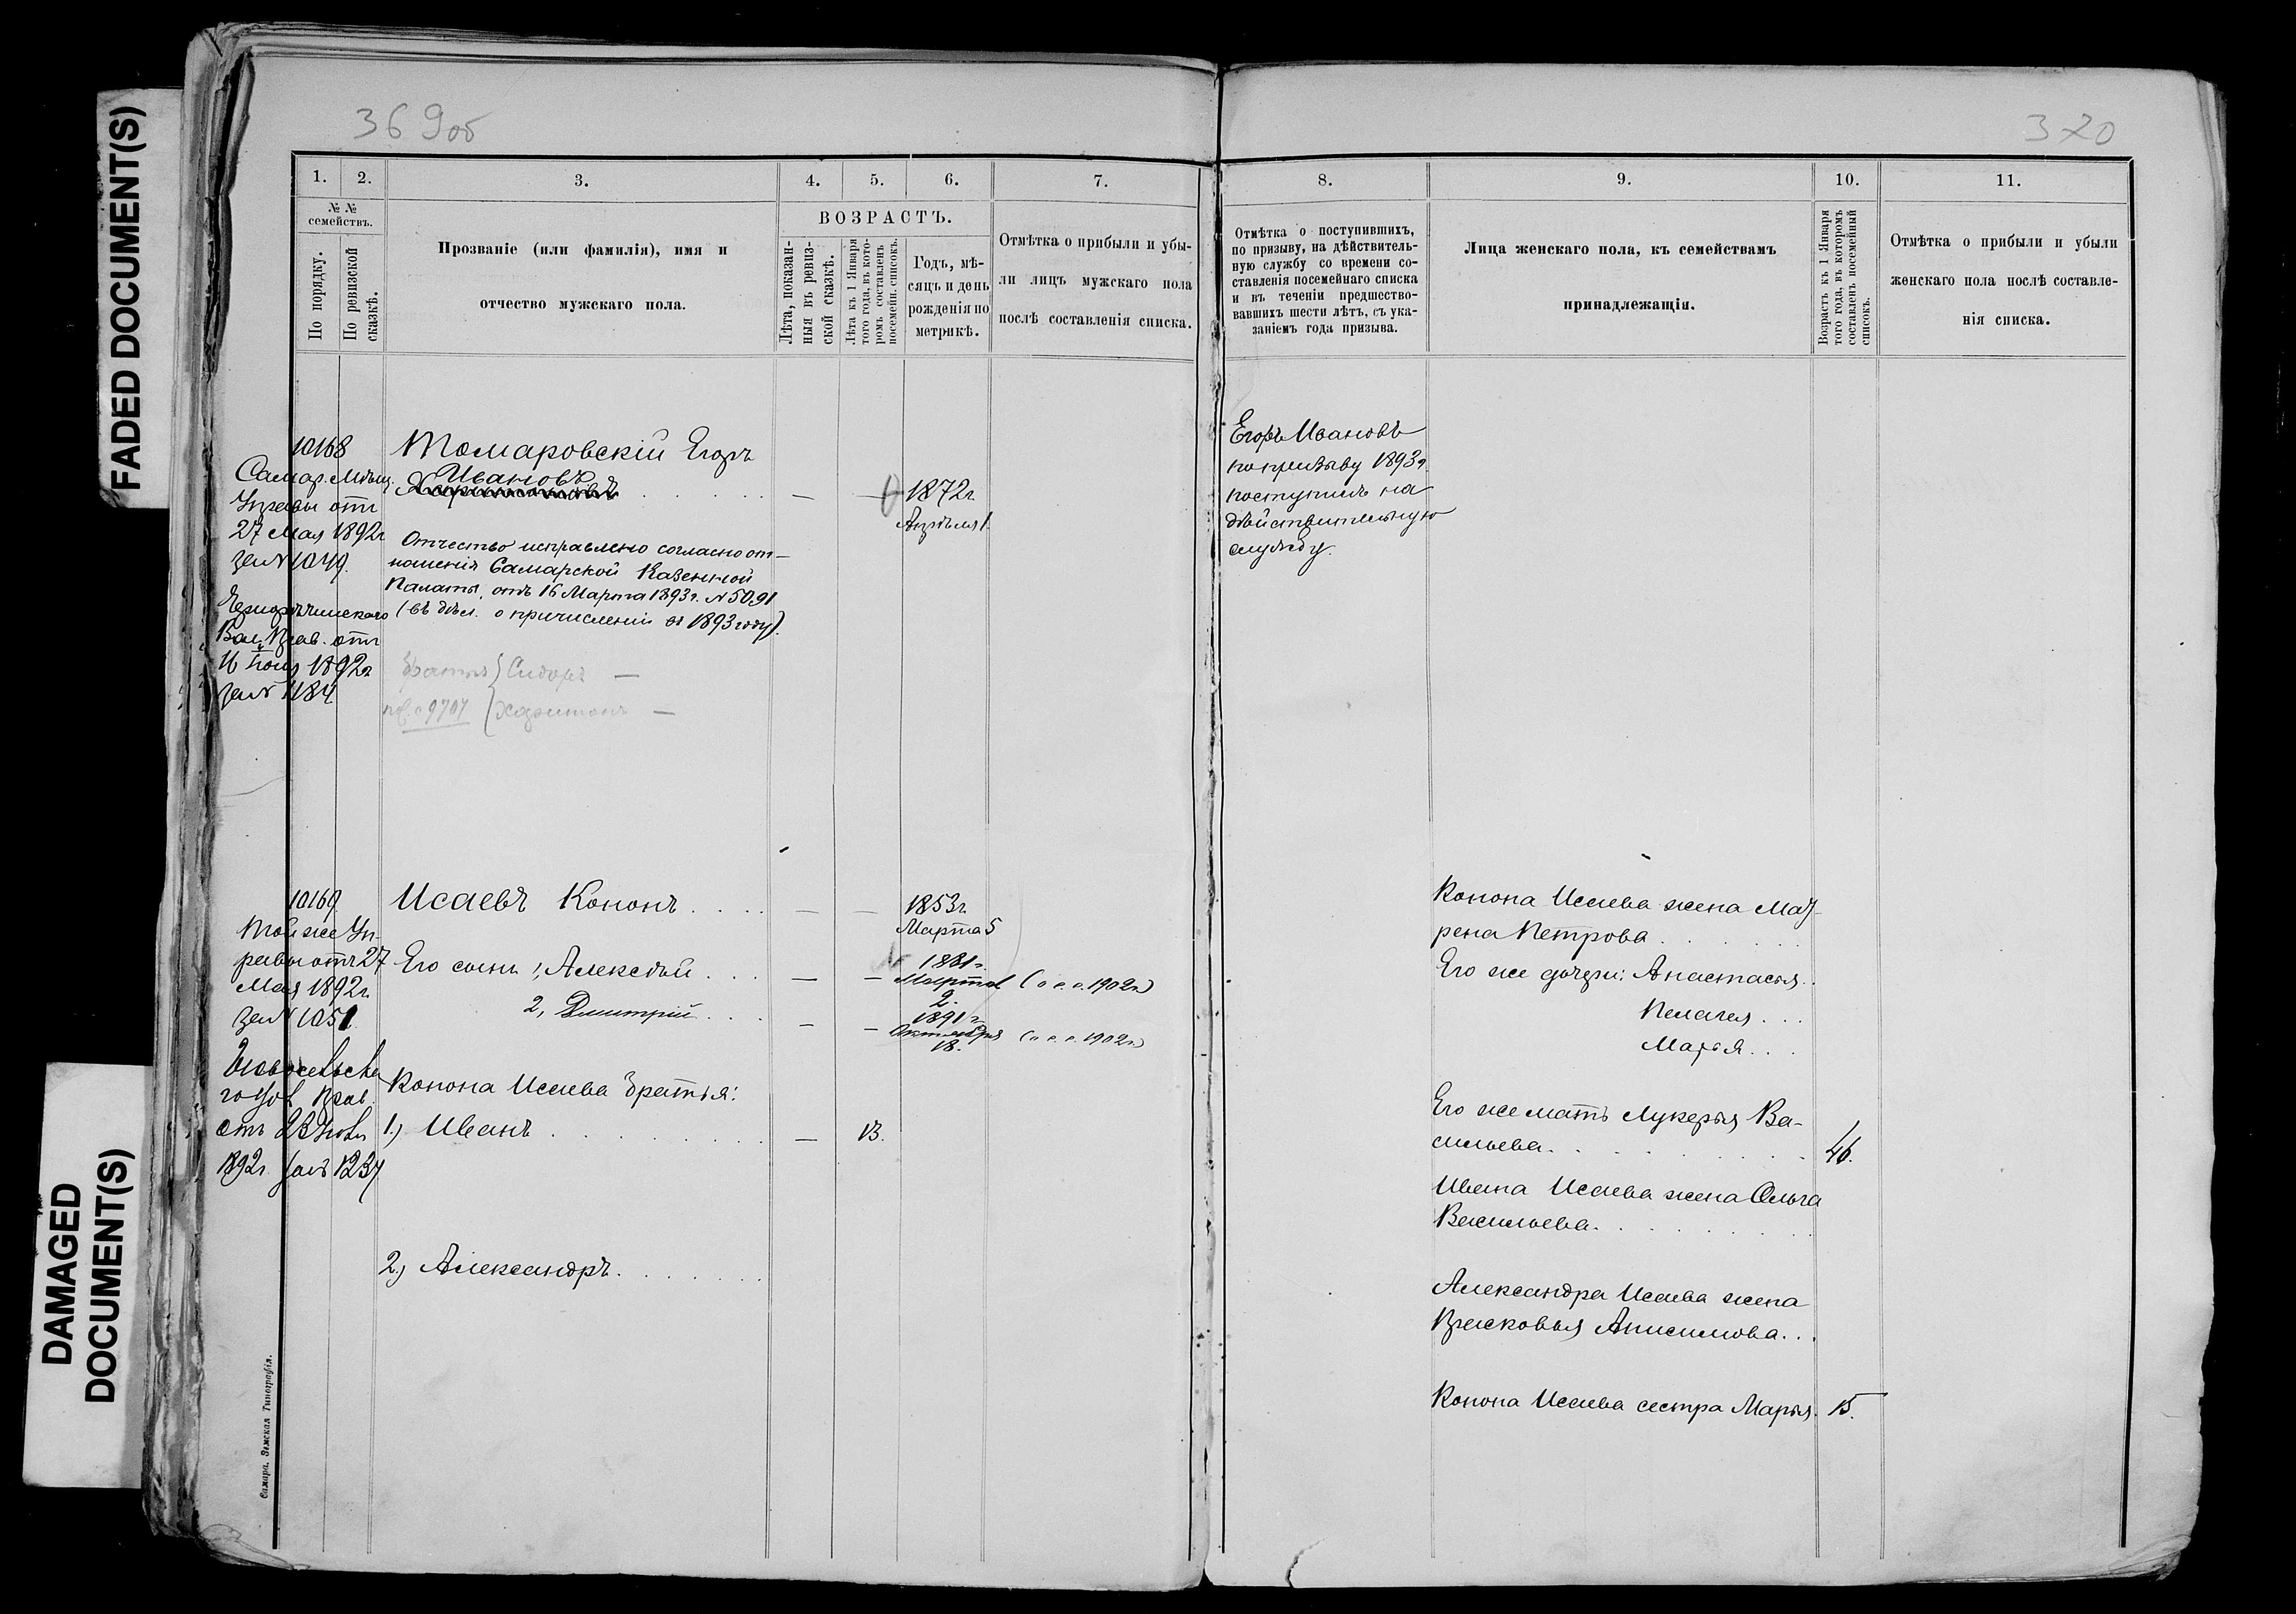 FADED DOCUMENT(S)
DAMAGED
DOCUMENT(S)
369об
1.
2.
3.
4.
5.
6.
7.
№ №
семействъ.
По порядку.
По ревизской
сказкѣ.
Прозваніе (или фамилія), имя и
отчество мужскаго пола.
ВОЗРАСТЪ.
Лѣта, показан-
ныя въ ревиз-
ской сказкѣ.
Лѣта къ 1 Января
того года, въ кото-
ромъ составленъ
посемейн. списокъ.
Годъ, мѣ-
сяцъ и день
рожденія по
метрикѣ.
Отмѣтка о прибыли и убы-
ли лицъ мужскаго пола
послѣ составленія списка.
10168
Самар. Мѣщ.
Управы отъ
27 Мая 1892г
за № 1049.
Вол. Прав. отъ
1892г
за № 1184
Томаровскій Егоръ
Ивановъ
1872г.
Апрѣля 1.
Отчество исправлено согласно от-
ношенія Самарской Казенной
Палаты, отъ 16 Марта 1893г. № 5091
(въ дѣл. о причисленіи въ 1893 году).
братъ Сидоръ —
9707 Харитонъ —
10169
Той же Уп-
равы отъ 27
Мая 1892г.
за № 1051
Прав.
отъ 23 Іюля
1892г. за № 1237
Исаевъ Кононъ
1853г.
Марта 5
Его сынъ 1, Алексѣй
1881г.
Марта
2.
(о с. с. 1902г.)
2, Дмитрій
1891г.
Октября
18.
(о с. с. 1902г.)
Конона Исаева братья:
1.) Иванъ
13.
2.) Александръ
Самара. Земская Типографія.
370
8.
9.
10.
11.
Отмѣтка о поступившихъ,
по призыву, на дѣйствитель-
ную службу со времени со-
ставленія посемейнаго списка
и въ теченіи предшество-
вавшихъ шести лѣтъ, съ ука-
заніемъ года призыва.
Лица женскаго пола, къ семействамъ
принадлежащія.
Возрастъ къ 1 Января
того года, въ которомъ
составленъ посемейный
списокъ.
Отмѣтка о прибыли и убыли
женскаго пола послѣ составле-
нія списка.
Егоръ Ивановъ
по призыву 1893г.
поступилъ на
дѣйствительную
службу.
Конона Исаева жена Мат-
рена Петрова
Его же дочери: Анастасья
Пелагея
Марья
Его же мать Лукерья Ва-
сильева
46.
Ивана Исаева жена Ольга
Васильева
Александра Исаева жена
Прасковья Анисимова
Конона Исаева сестра Марья. 15.